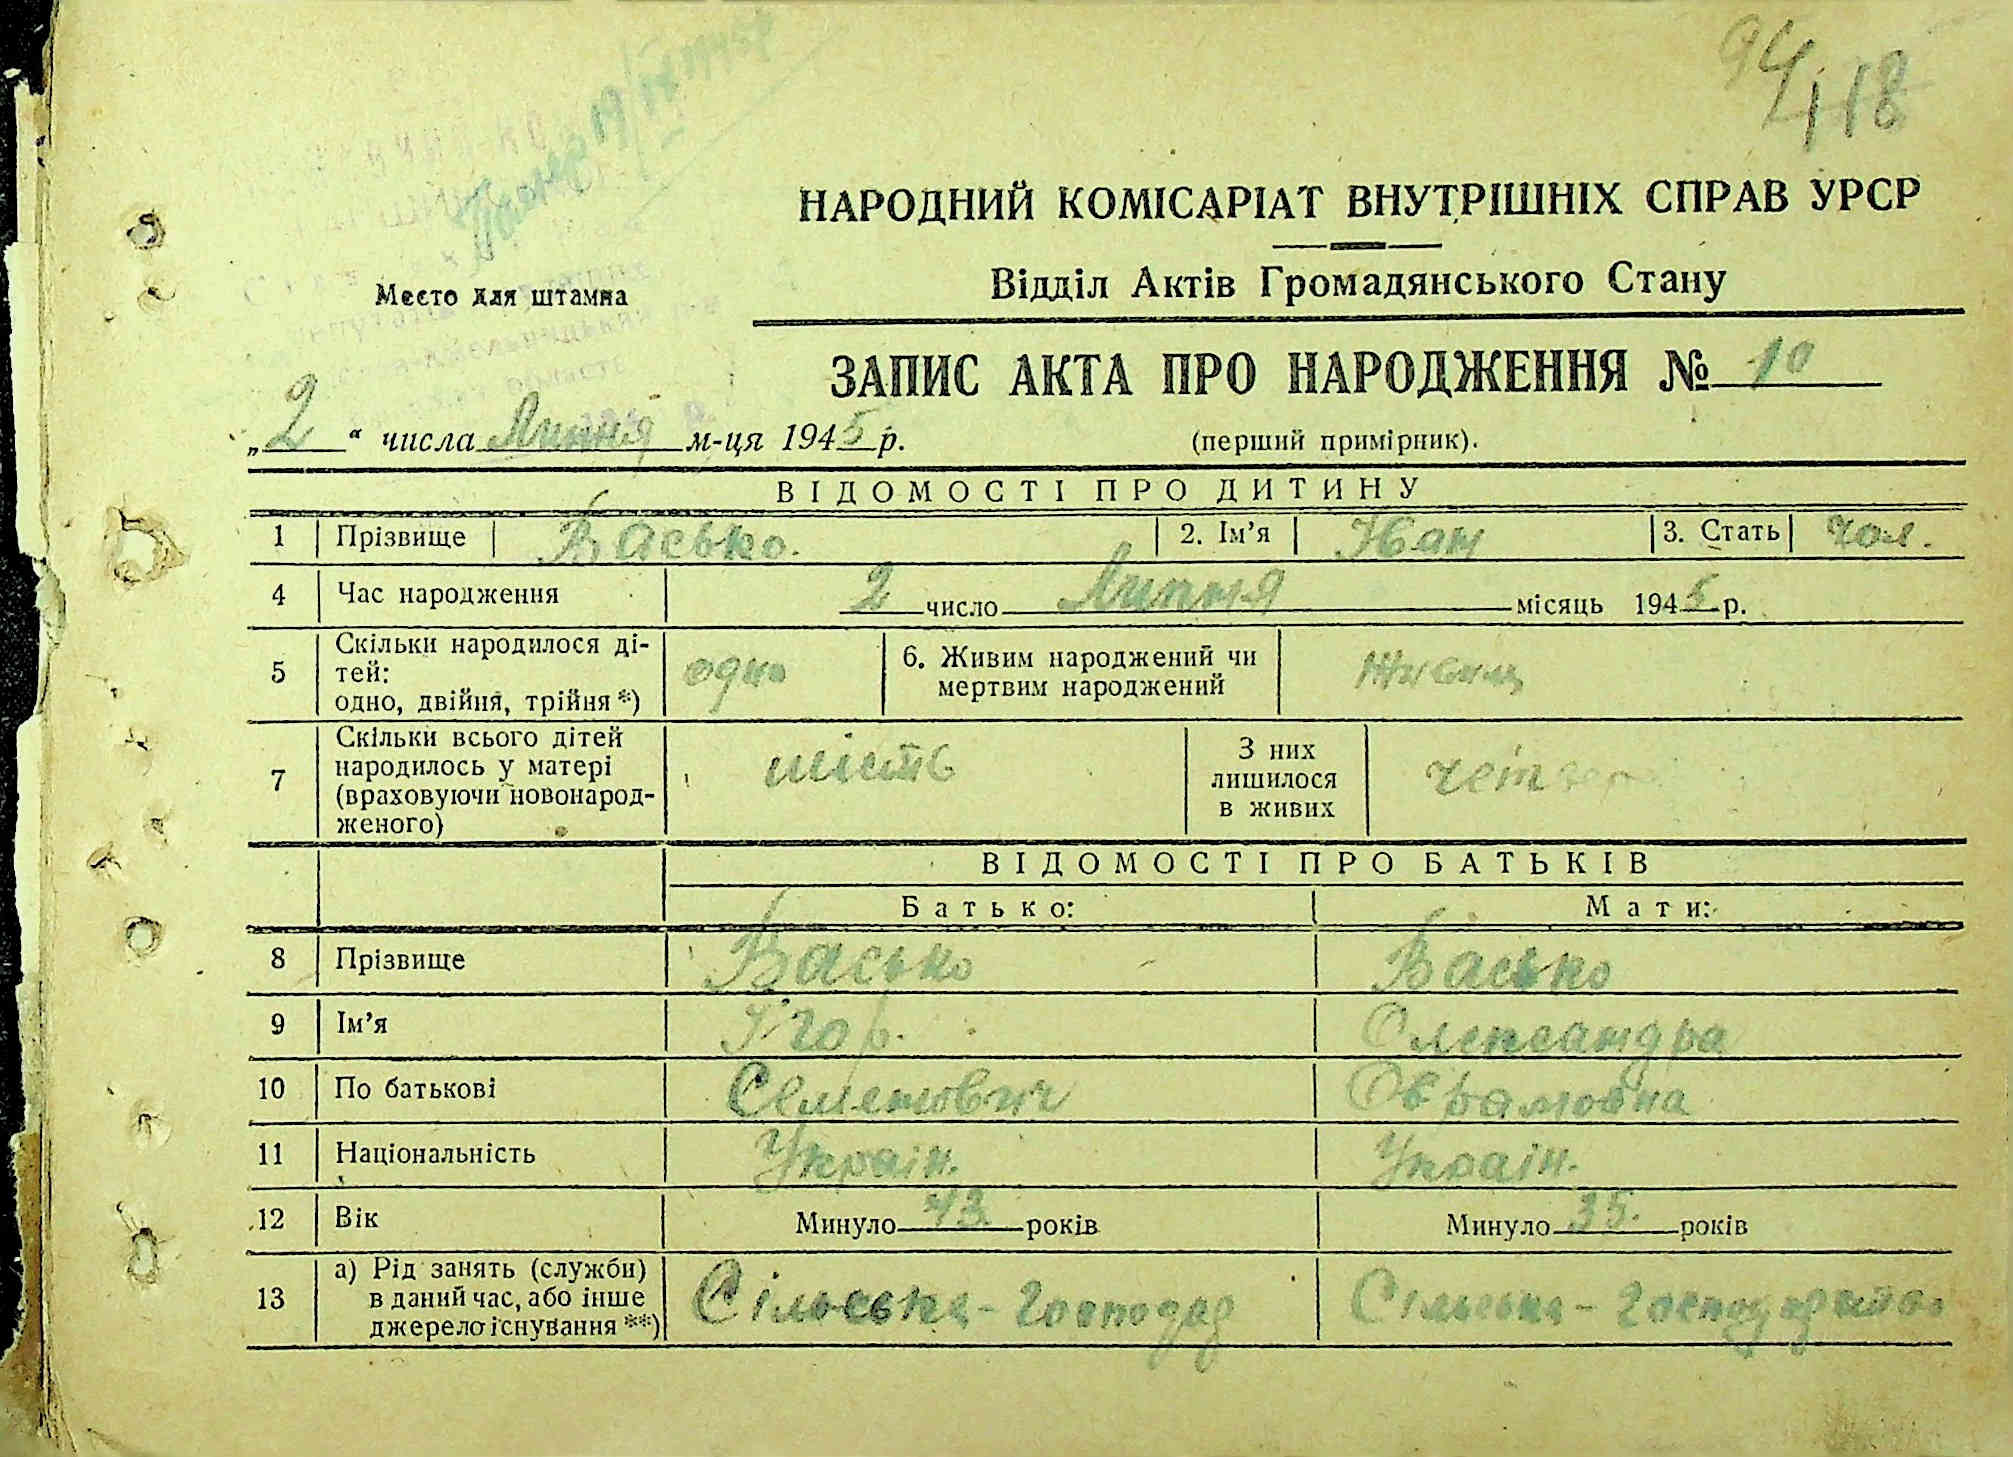 94
118
НАРОДНИЙ КОМІСАРІАТ ВНУТРІШНІХ СПРАВ УРСР
Відділ Актів Громадянського Стану
Место для штампа
ЗАПИС АКТА ПРО НАРОДЖЕННЯ № 10
„2“ числа Липня м-ця 1945 р.
(перший примірник).
ВІДОМОСТІ ПРО ДИТИНУ
1 Прізвище Васько. 2. Ім’я Іван 3. Стать чол.
4 Час народження 2 число Липня місяць 1945 р.
5 Скільки народилося ді-
тей:
одно, двійня, трійня *) одно 6. Живим народжений чи
мертвим народжений Живим
7 Скільки всього дітей
народилось у матері
(враховуючи новонарод-
женого) шість З них
лишилося
в живих
ВІДОМОСТІ ПРО БАТЬКІВ
Батько: Мати:
8 Прізвище Васько Васько
9 Ім’я Ігор. Олександра
10 По батькові Семенович Оврамовна
11 Національність Україн. Україн.
12 Вік Минуло 43 років Минуло 35. років
13 а) Рід занять (служби)
в даний час, або інше
джерело існування **) Сільська-господар Сільська-господарство